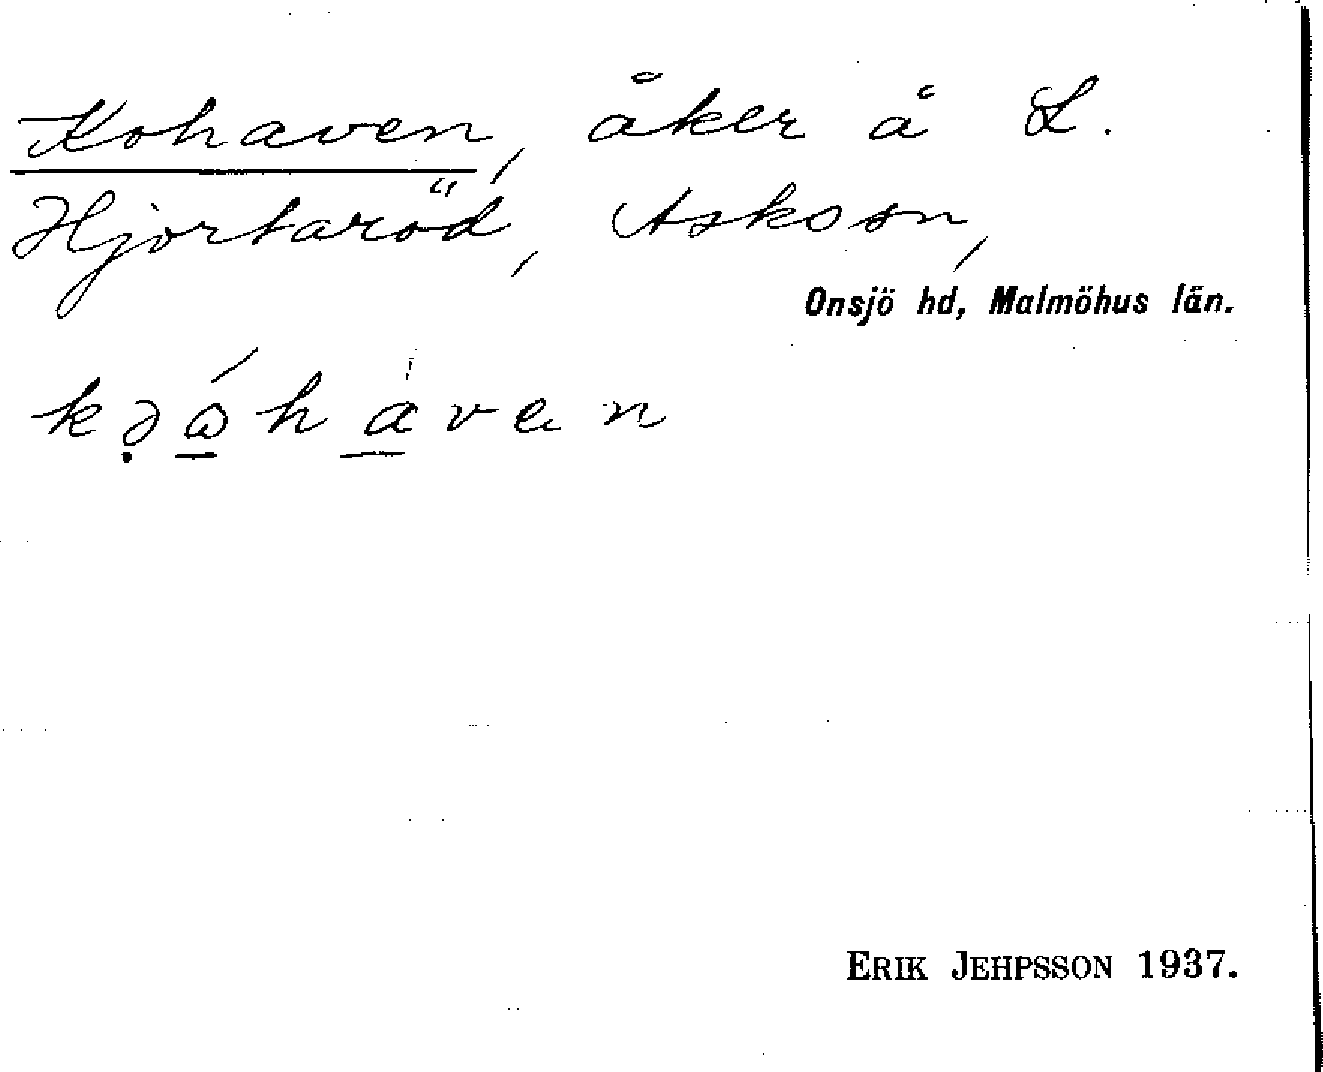 Kohaven, åker å L.
Hjortaröd, Askssn,
Onsjö hd, Malmöhus län.
kə̣ώhàven
ERIK JEHPSSON 1937.